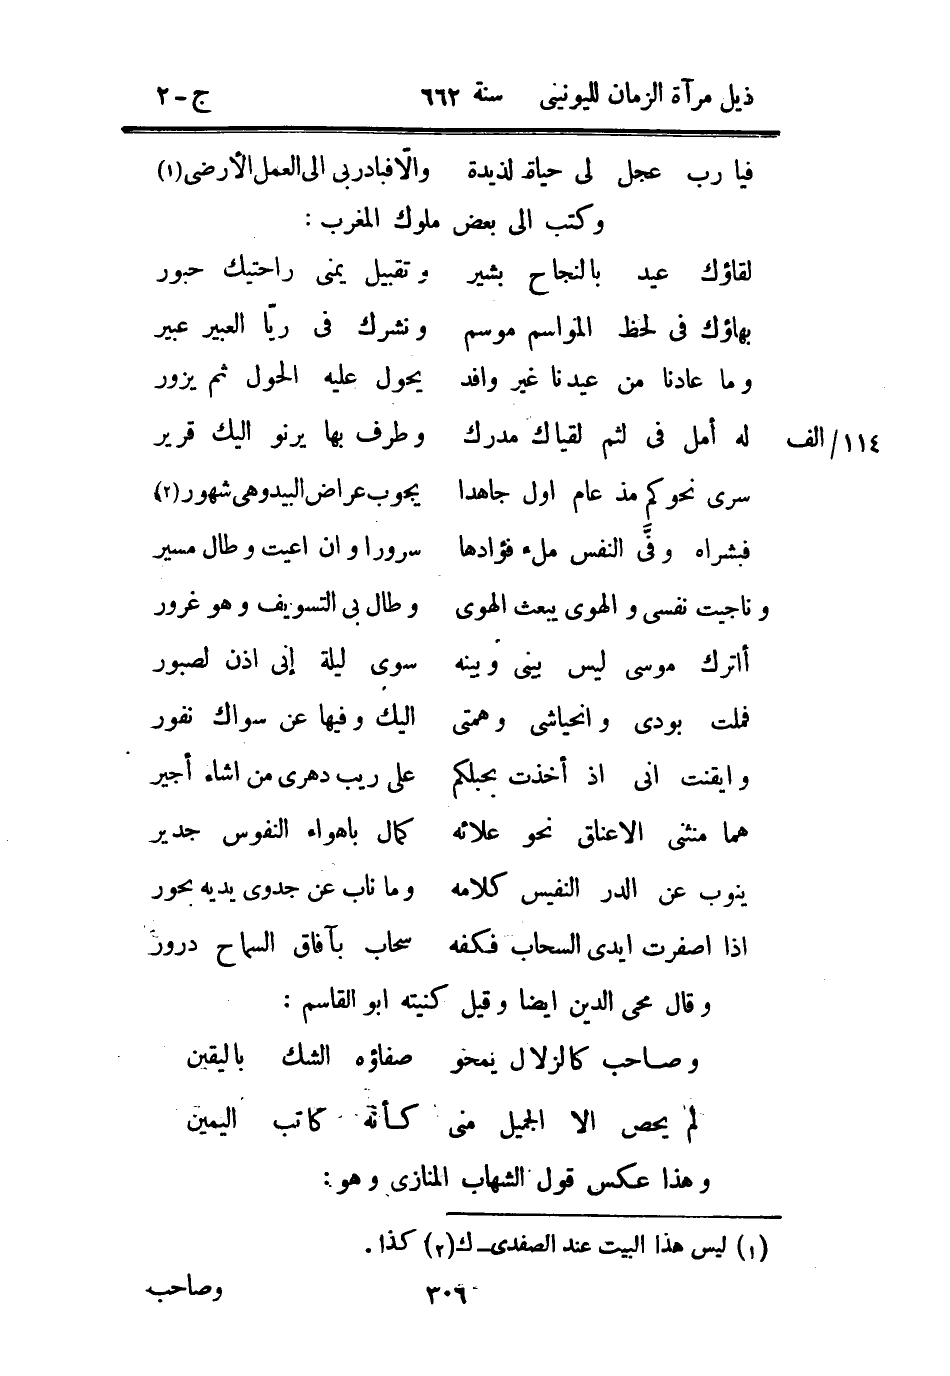 ذيل مرآة الزمان لليونينى سنة ٦٦٢ ج - ٢
فيا رب عجل لى حياة لذيذة والّا فبادر بى الى العمل الأرضى (١)
و كتب الى بعض ملوك المغرب :
لقاؤك عيد بالنجاح بشير و تقبيل يمنى راحتيك حبور
بهاؤك فى لحظ المواسم موسم و نشرك فى ريّا العبير عبير
و ما عادنا من عيدنا غير وافد يحول عليه الحول ثم يزور
١١٤/ الف له أمل فى لثم لقياك مدرك و طرف بها يرنو اليك قرير
سرى نحوكم مذ عام اول جاهدا يجوب عراض البيد وهى شهور (٢)
فبشراه و فّى النفس ملء فؤادها سرورا و ان اعيت و طال مسير
و ناجيت نفسى و الهوى يبعث الهوى و طال بى التسويف و هو غرور
أاترك موسى ليس بينى و بينه سوى ليلة إنى اذن لصبور
فملت بودى و انحياشى و همتى اليك و فيها عن سواك نفور
و ايقنت انى اذ أخذت بحبلكم على ريب دهرى من اشاء أجير
هما منثنى الاعناق نحو علائه كمال باهواء النفوس جدير
ينوب عن الدر النفيس كلامه و ما ناب عن جدوى يديه بحور
اذا اصفرت ايدى السحاب فكفه سحاب بآفاق السماح درور
و قال محى الدين ايضا و قيل كنيته ابو القاسم :
و صاحب كالزلال يمحو صفاؤه الشك باليقين
لم يحص الا الجميل منى كأنه كاتب اليمين
و هذا عكس قول الشهاب المنازى و هو :
(١) ليس هذا البيت عند الصفدى ـ ك (٢) كذا .
٣٠٦ وصاحب